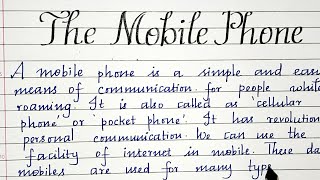 The Mobile Phone
A mobile phone is a simple and easy
means of communication for people while
roaming. It is also called as 'cellular
phone' or 'pocket phone'. It has revolution
personal communication. We can use the
facility of internet in mobile. These da
mobiles are used for many type